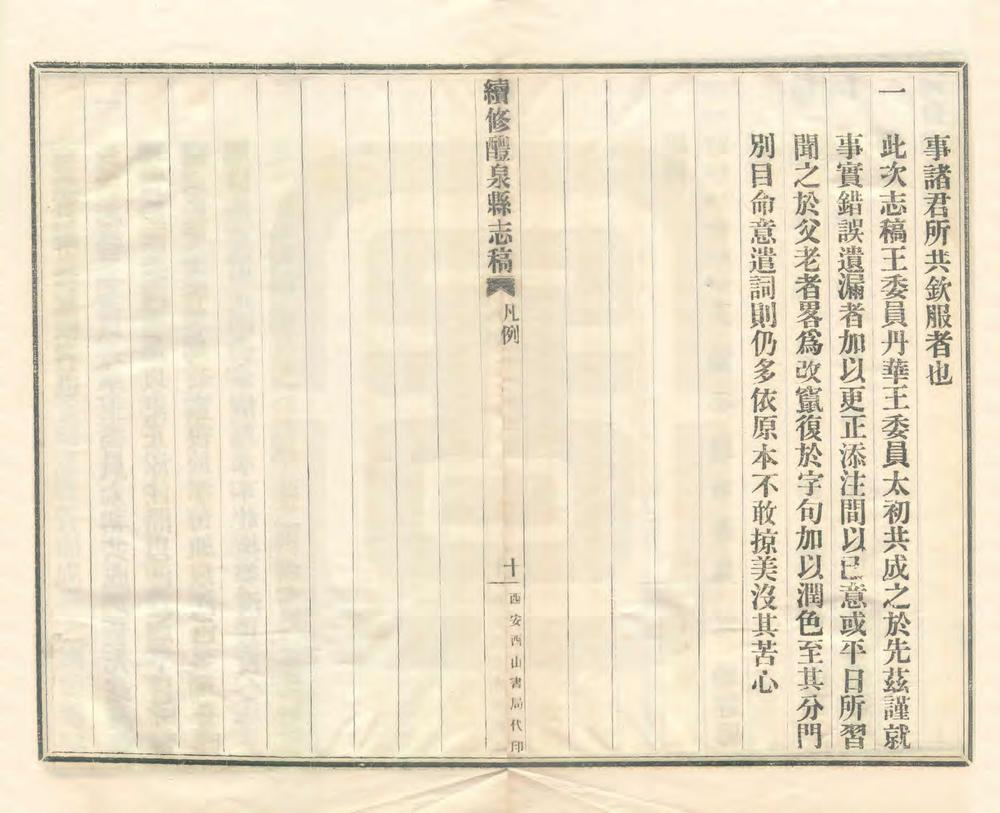 事諸君所共欽服者也
一 此次志稿王委員丹華王委員太初共成之於先茲謹就
事實錯誤遺漏者加以更正添注間以己意或平日所習
聞之於父老者畧爲改竄復於字句加以潤色至其分門
別目命意遣詞則仍多依原本不敢掠美沒其苦心
續修醴泉縣志稿 凡例 十 西安西山書局代印